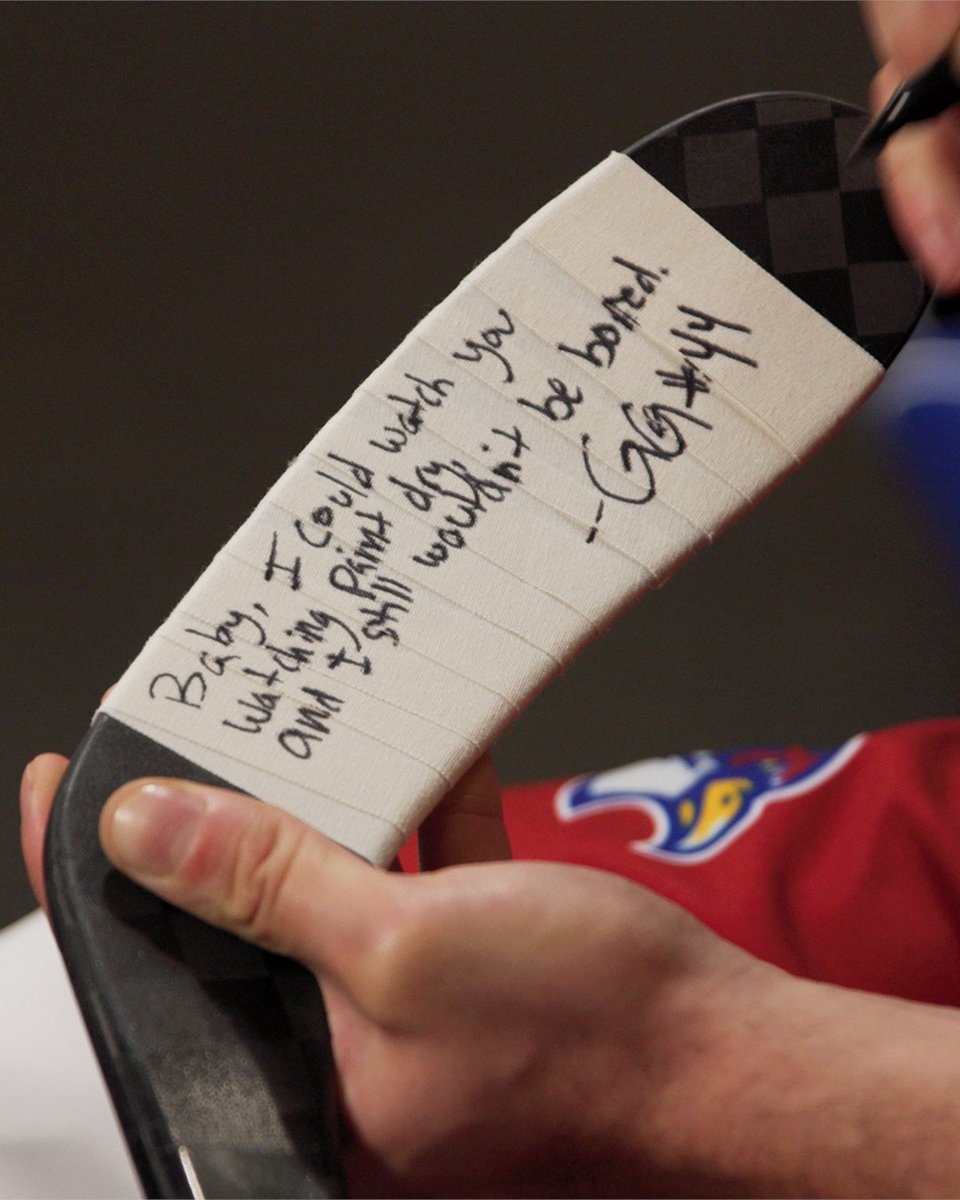 Baby, I could watch you
watching paint dry
and I still wouldn't be bored.
--GG #44